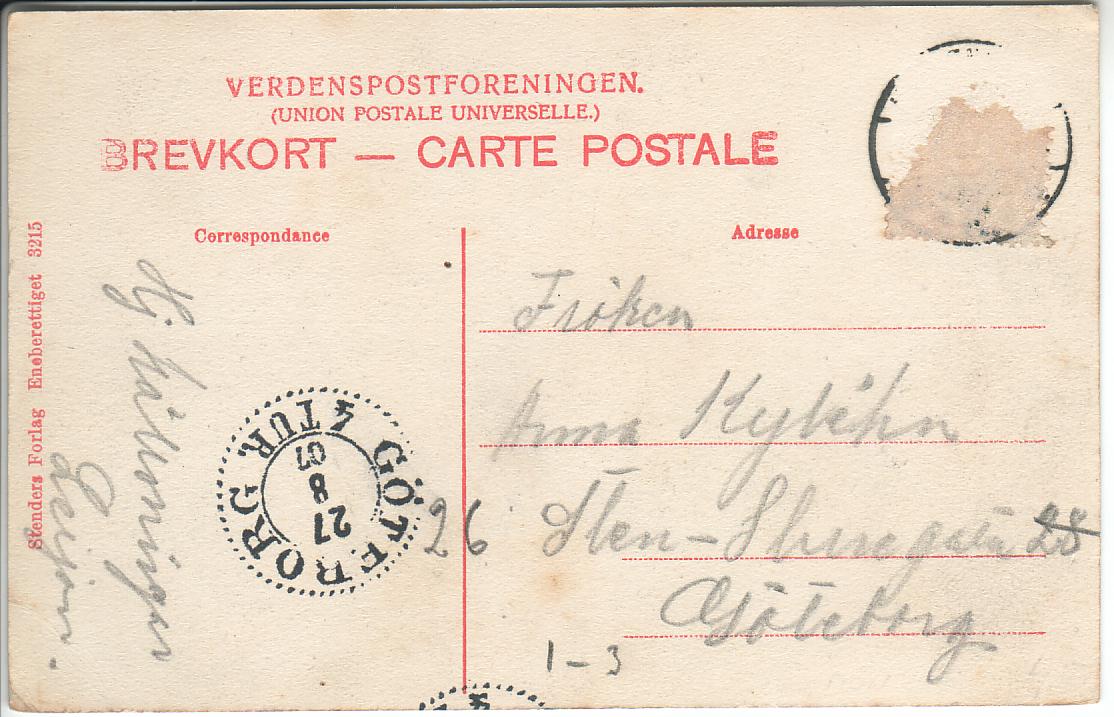 VERDENSPOSTFORENINGEN.
(UNION POSTALE UNIVERSELLE.)
BREVKORT — CARTE POSTALE
Correspondance
Adresse
Stenders Forlag Eneberettiget 3215
Hj hälsningar
GÖTEBORG
4 TUR.
27
8
07
Fröken
Anna
26 Sten-Sturegatan 28
Göteborg
1-3